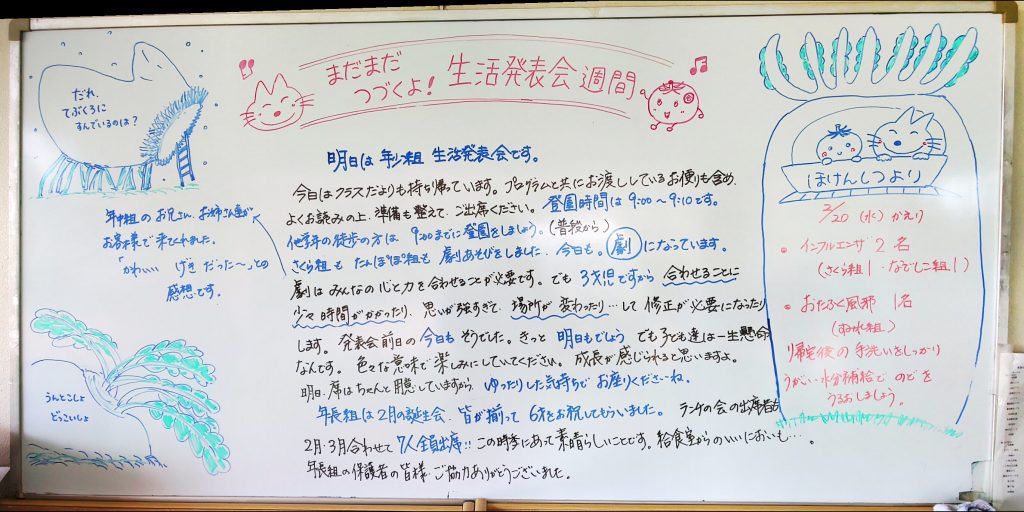 まだまだ
つづくよ！ 生活発表会週間
だれ、
てぶくろに
すんでいるのは？
明日は 年少組 生活発表会です。
今日はクラスだよりも持ち帰っています。プログラムと共にお渡ししているお便りも含め、
よくお読みの上、準備も整えて、ご出席ください。登園時間は 9:00〜9:10です。
他学年の徒歩の方は 9:00までに登園をしましょう。(普段から)
さくら組も たんぽぽ組も 劇あそびをしました。今日も。劇になっています。
劇はみんなの心と力を合わせることが必要です。でも 3才児ですから 合わせることに
少々時間がかかったり、思いが強すぎて、場所が変わったり…して 修正が必要になったり
します。発表会前日の今日も そうでした。きっと 明日もでしょう でも子ども達は一生懸命
なんです。色々な意味で楽しみにしていてください。成長が感じられると思いますよ。
明日、席はちゃんと用意していますから、ゆったりした気持ちで お座りくださいね。
年長組は2月の誕生会、皆が揃って 6才をお祝してもらいました。ランチの会の出席者も
2月・3月合わせて 7人全員出席!! この時季にあって素晴らしいことです。給食室からのいいにおいも…。
年長組の保護者の皆様 ご協力ありがとうございました。
年中組のお兄さん、お姉さん達が
お客様で来てくれました。
「かわいい げきだった〜」との
感想です。
うんとこしょ
どっこいしょ
ほけんしつより
2/20 (水) かえり
・インフルエンザ 2名
(さくら組1・なでしこ組1)
・おたふく風邪 1名
(すみれ組)
帰宅後の手洗いをしっかり
うがい・水分補給で のどを
うるおしましょう。